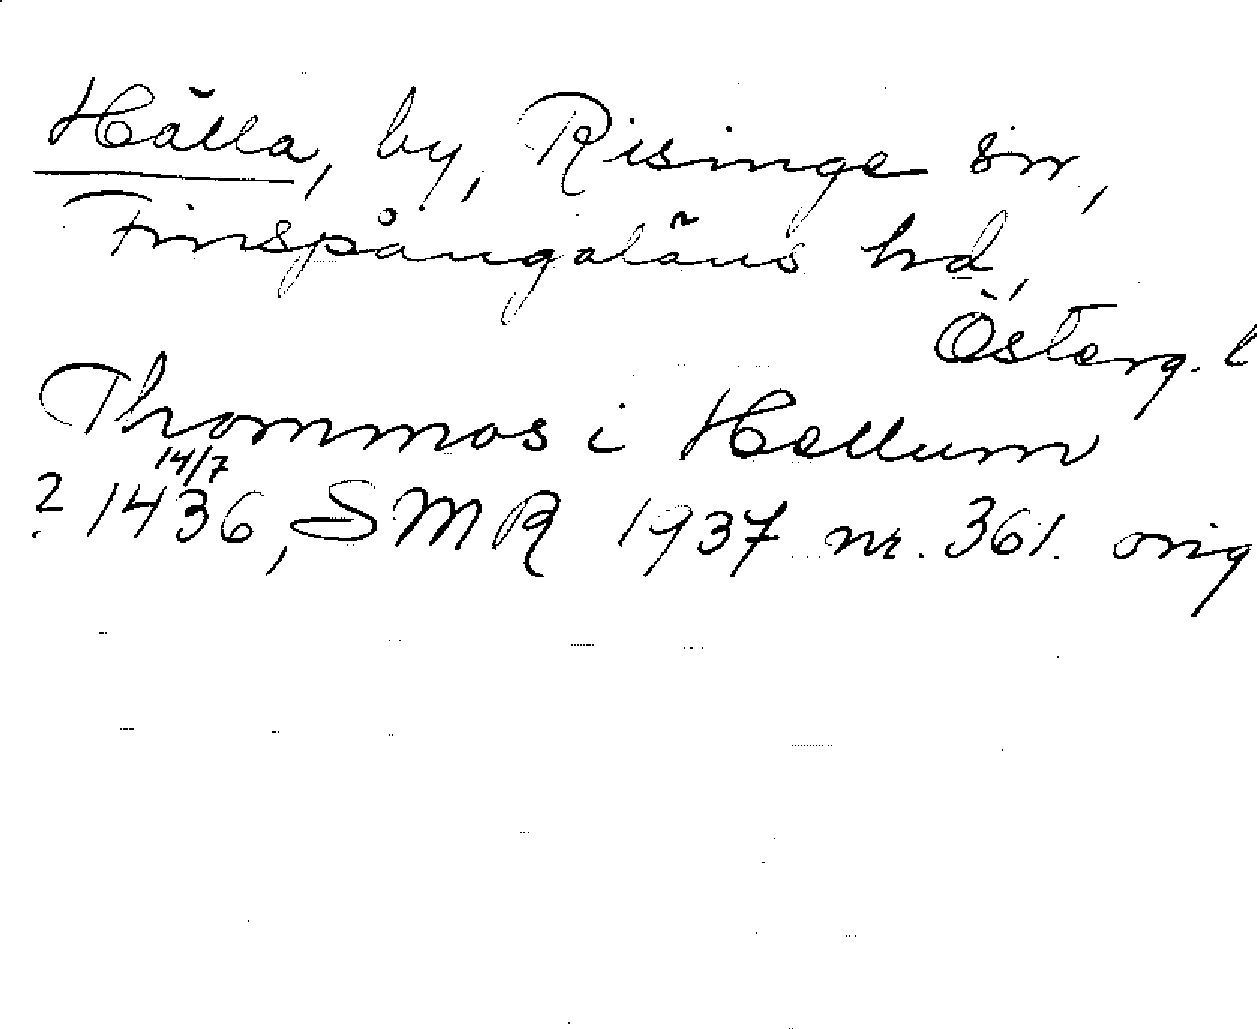 Hälla, by, Risinge sn,
Finspångaläns hd,
Österg. l
Thommos i Hellum
14/7
? 1436, SMR 1937 nr. 361. orig